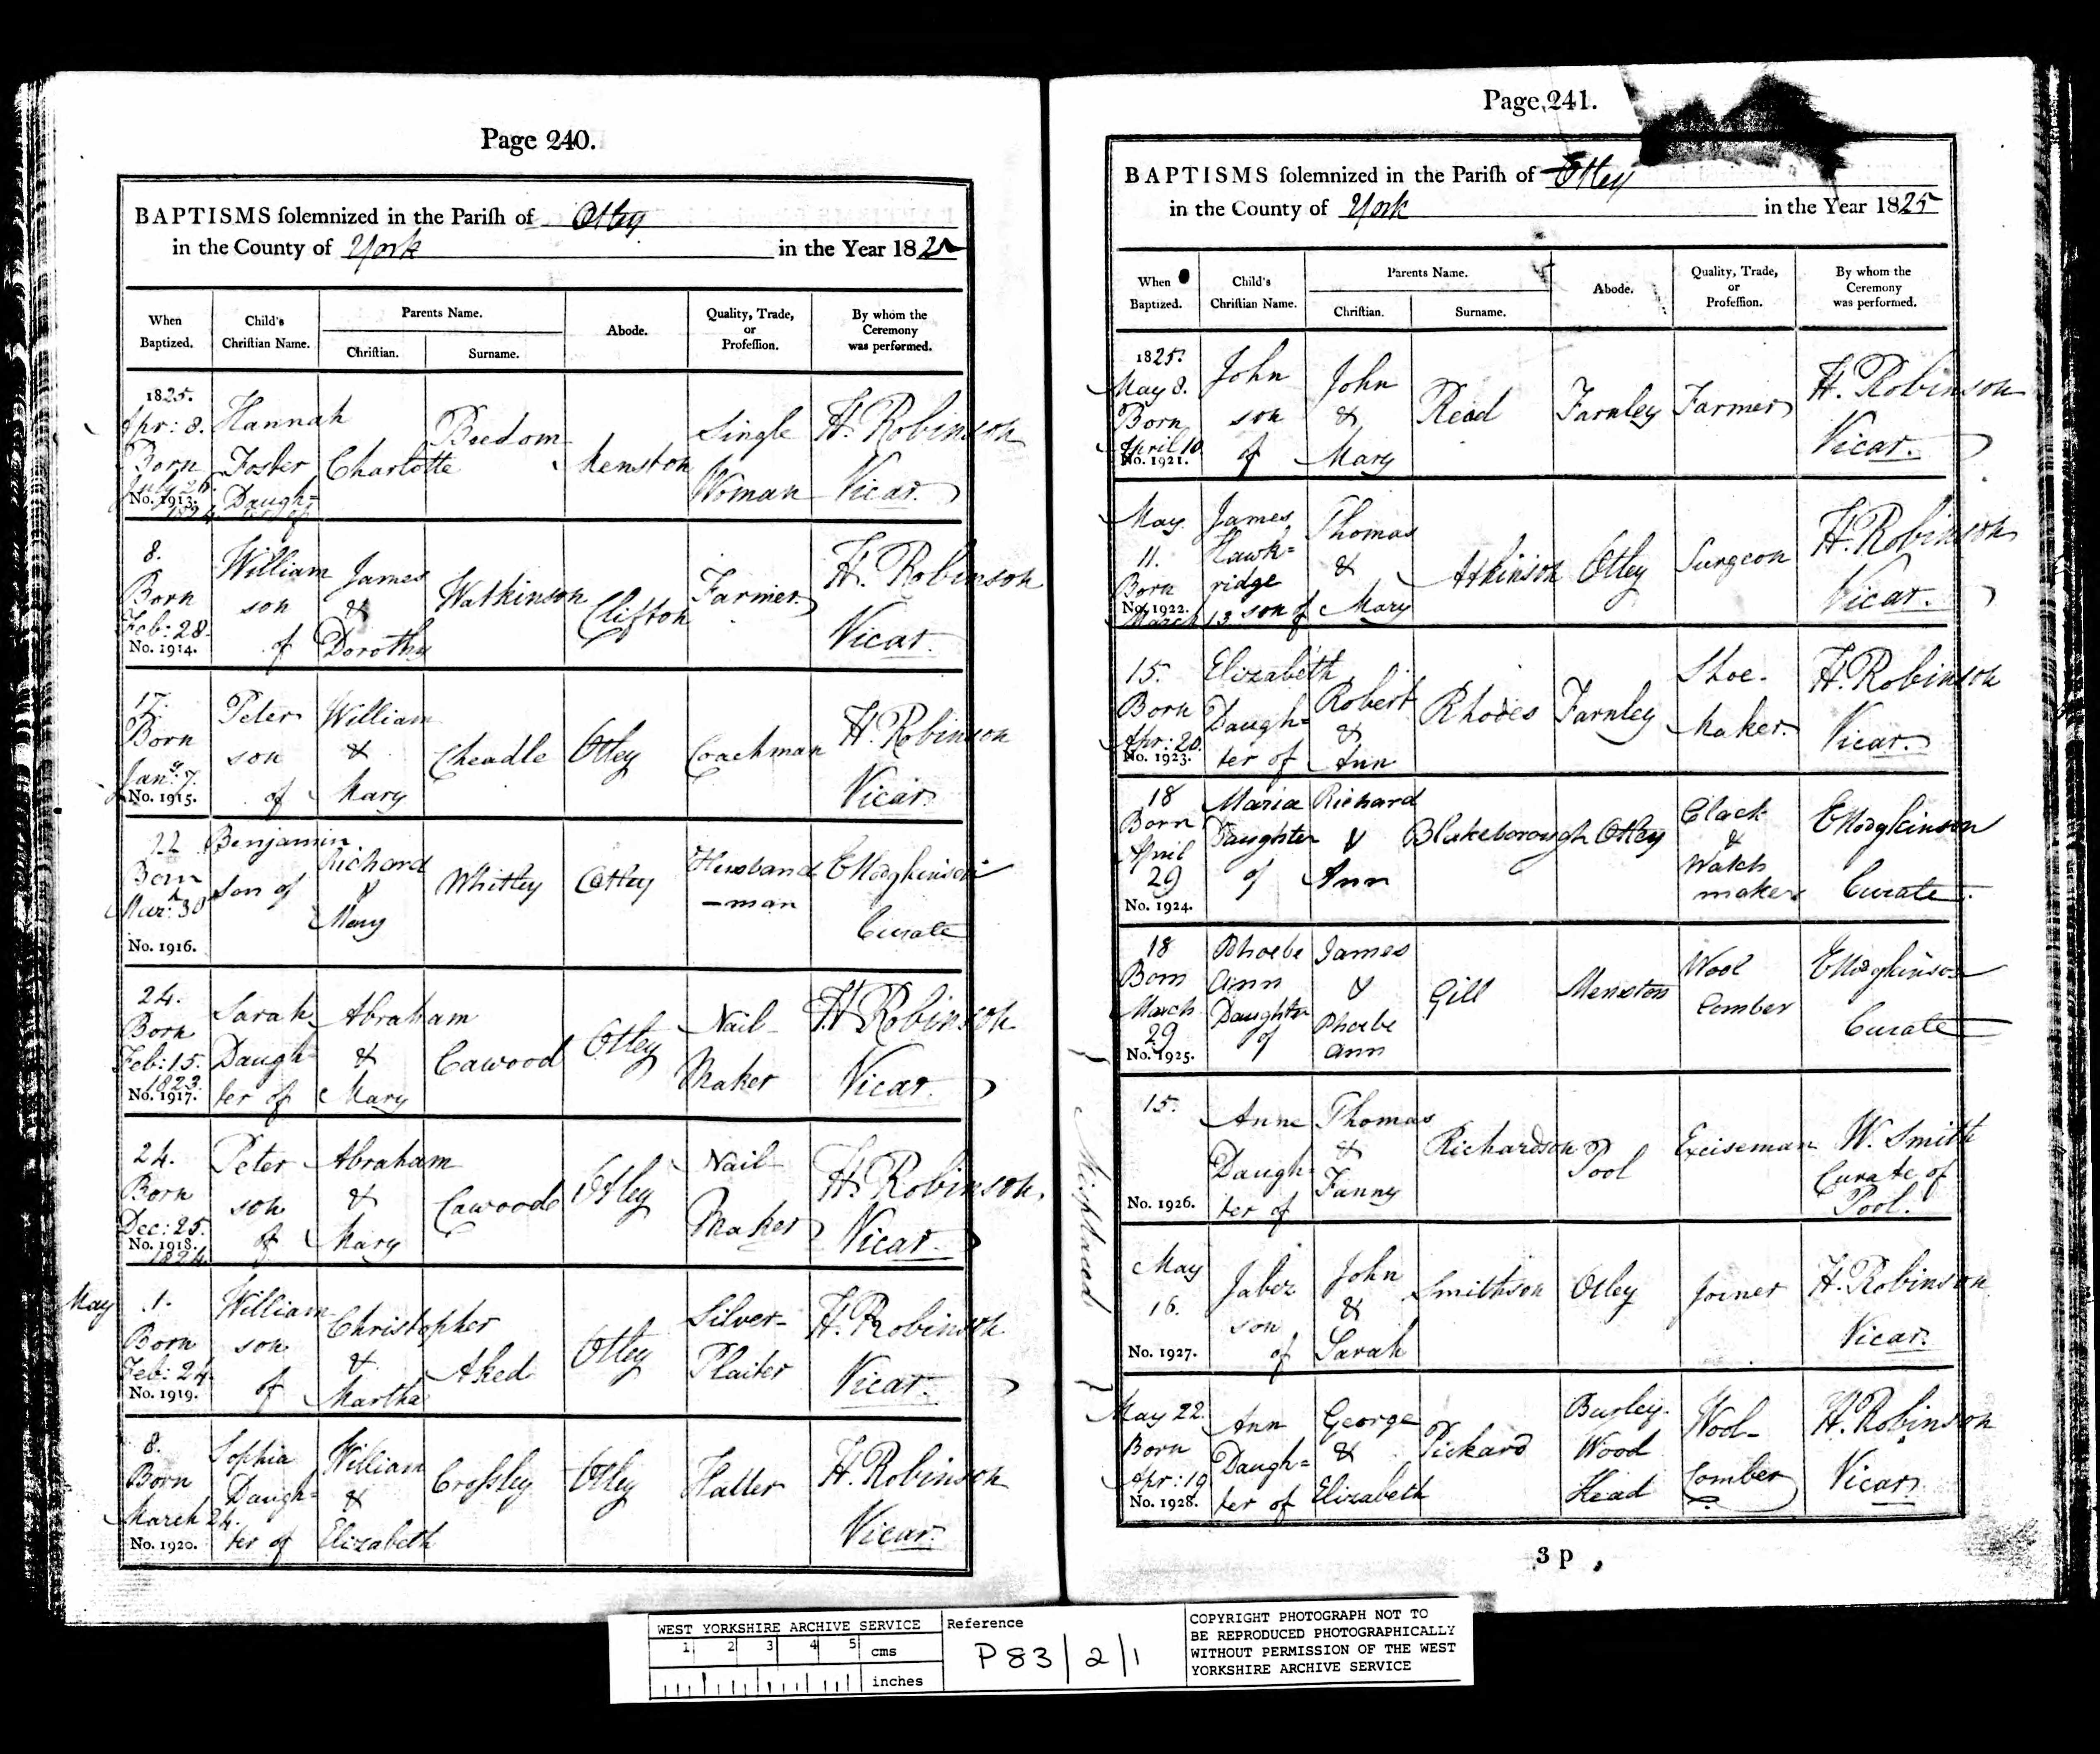 Page 240.
BAPTISMS solemnized in the Parish of Otley
in the County of York in the Year 1825
When Baptized. Child's Christian Name. Parents Name. Christian. Surname. Abode. Quality, Trade, or Profession. By whom the Ceremony was performed.
1825. Apr: 8. Born July 26. 1824 No. 1913. Hannah Foster Daugh= Charlotte Beedom Menston Single Woman H. Robinson Vicar.
8. Born Feb: 28. No. 1914. William son of James & Dorothy Watkinson Clifton Farmer. H. Robinson Vicar.
17. Born Jany. 7. No. 1915. Peter son of William & Mary Cheadle Otley Coachman H. Robinson Vicar.
22 Born Mar: 30 No. 1916. Benjamin son of Richard & Mary Whitley Otley Husband -man E Hodgkinson Curate
24. Born Feb: 15. 1823. No. 1917. Sarah Daugh= ter of Abraham & Mary Cawood Otley Nail Maker H. Robinson Vicar.
24. Born Dec: 25. 1824. No. 1918. Peter son of Abraham & Mary Cawood Otley Nail Maker H. Robinson Vicar.
May 1. Born Feb: 24. No. 1919. William son of Christopher & Martha Aked Otley Silver- Plaiter H. Robinson Vicar.
8. Born March 24. No. 1920. Sophia Daugh= ter of William & Elizabeth Crossley Otley Hatter H. Robinson Vicar.
Page 241.
BAPTISMS solemnized in the Parish of Otley
in the County of York in the Year 1825
When Baptized. Child's Christian Name. Parents Name. Christian. Surname. Abode. Quality, Trade, or Profession. By whom the Ceremony was performed.
1825. May 8. Born April 10 No. 1921. John son of John & Mary Read Farnley Farmer H. Robinson Vicar.
May 11. Born March 13 No. 1922. James Hawk= ridge son of Thomas & Mary Atkinson Otley Surgeon H. Robinson Vicar.
15. Born Apr: 20. No. 1923. Elizabeth Daugh= ter of Robert & Ann Rhodes Farnley Shoe- Maker. H. Robinson Vicar.
18 Born April 29 No. 1924. Maria Daughter of Richard & Ann Blakeborough Otley Clock & Watch maker E Hodgkinson Curate.
18 Born March 29 No. 1925. Phoebe Ann Daughter of James & Phoebe Ann Gill Menston Wool Comber E Hodgkinson Curate
Misplaced
15. No. 1926. Anne Daugh ter of Thomas & Fanny Richardson Pool Exciseman W. Smith Curate of Pool.
May 16. No. 1927. Jabez son of John & Sarah Smithson Otley Joiner H. Robinson Vicar.
May 22. Born Apr: 19 No. 1928. Ann Daugh= ter of George & Elizabeth Pickard Burley Wood Head Wool- Comber H. Robinson Vicar
3 P
WEST YORKSHIRE ARCHIVE SERVICE
1 2 3 4 5 cms
inches
Reference
P83/2/1
COPYRIGHT PHOTOGRAPH NOT TO
BE REPRODUCED PHOTOGRAPHICALLY
WITHOUT PERMISSION OF THE WEST
YORKSHIRE ARCHIVE SERVICE